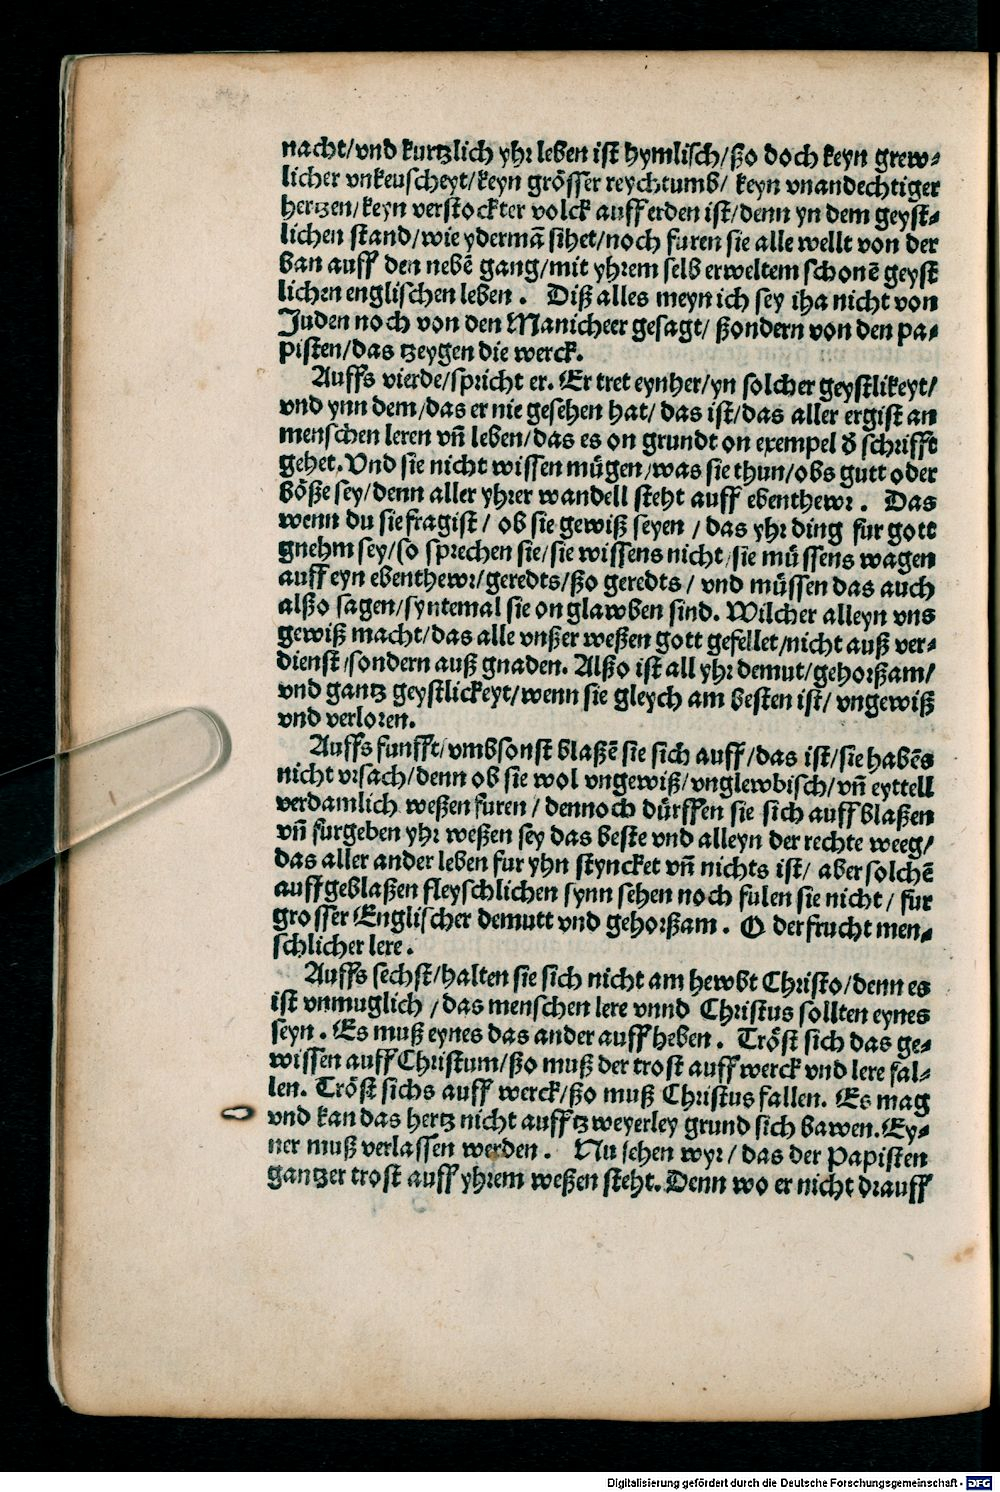 nacht/vnd kurtzlich yhr leben ist hymlisch/ßo doch keyn grew⸗
licher vnkeuscheyt/keyn grösser reychtumb/ keyn vnandechtiger
hertzen/keyn verstockter volck auff erden ist/denn yn dem geyst⸗
lichen stand/wie ydermā sihet/noch furen sie alle wellt von der
ban auff den nebē gang/mit yhrem selb erweltem schonē geyst
lichen englischen leben . Diß alles meyn ich sey iha nicht von
Juden noch von den Manicheer gesagt/ ßondern von den pa⸗
pisten/das tzeygen die werck.
Auffs vierde/spricht er. Er tret eynher/yn solcher geystlikeyt/
vnd ynn dem/das er nie gesehen hat/ das ist/das aller ergist an
menschen leren vn̄ leben/das es on grundt on exempel d̕ schrifft
gehet. Vnd sie nicht wissen mügen/was sie thun/obs gutt oder
böße sey/denn aller yhrer wandell steht auff ebenthewr . Das
wenn du sie fragist/ ob sie gewiß seyen / das yhr ding fur gott
gnehm sey/so sprechen sie/sie wissens nicht/sie müssens wagen
auff eyn ebenthewr/geredts/ßo geredts / vnd müssen das auch
alßo sagen/syntemal sie on glawben sind. Wilcher alleyn vns
gewiß macht/das alle vnßer weßen gott gefellet/nicht auß ver⸗
dienst/sondern auß gnaden. Alßo ist all yhr demut/gehorßam/
vnd gantz geystlickeyt/wenn sie gleych am besten ist/ vngewiß
vnd verloren.
Auffs funfft/vmbsonst blaßē sie sich auff/das ist/sie habēs
nicht vrsach/denn ob sie wol vngewiß/vnglewbisch/vn̄ eyttell
verdamlich weßen furen / dennoch dürffen sie sich auffblaßen
vn̄ furgeben yhr weßen sey das beste vnd alleyn der rechte weeg/
das aller ander leben fur yhn styncket vn̄ nichts ist/ aber solchē
auffgeblaßen fleyschlichen synn sehen noch fulen sie nicht / fur
grosser Englischer demutt vnd gehorßam . O der frucht men⸗
schlicher lere .
Auffs sechst/halten sie sich nicht am hewbt Christo/denn es
ist vnmuglich /das menschen lere vnnd Christus sollten eynes
seyn . Es muß eynes das ander auffheben . Tröst sich das ge⸗
wissen auff Christum/ßo muß der trost auff werck vnd lere fal⸗
len. Tröst sichs auff werck/ßo muß Christus fallen. Es mag
vnd kan das hertz nicht auff tzweyerley grund sich bawen. Ey⸗
ner muß verlassen werden . Nu sehen wyr/ das der Papisten
gantzer trost auff yhrem weßen steht. Denn wo er nicht drauff
Digitalisierung gefördert durch die Deutsche Forschungsgemeinschaft - DFG